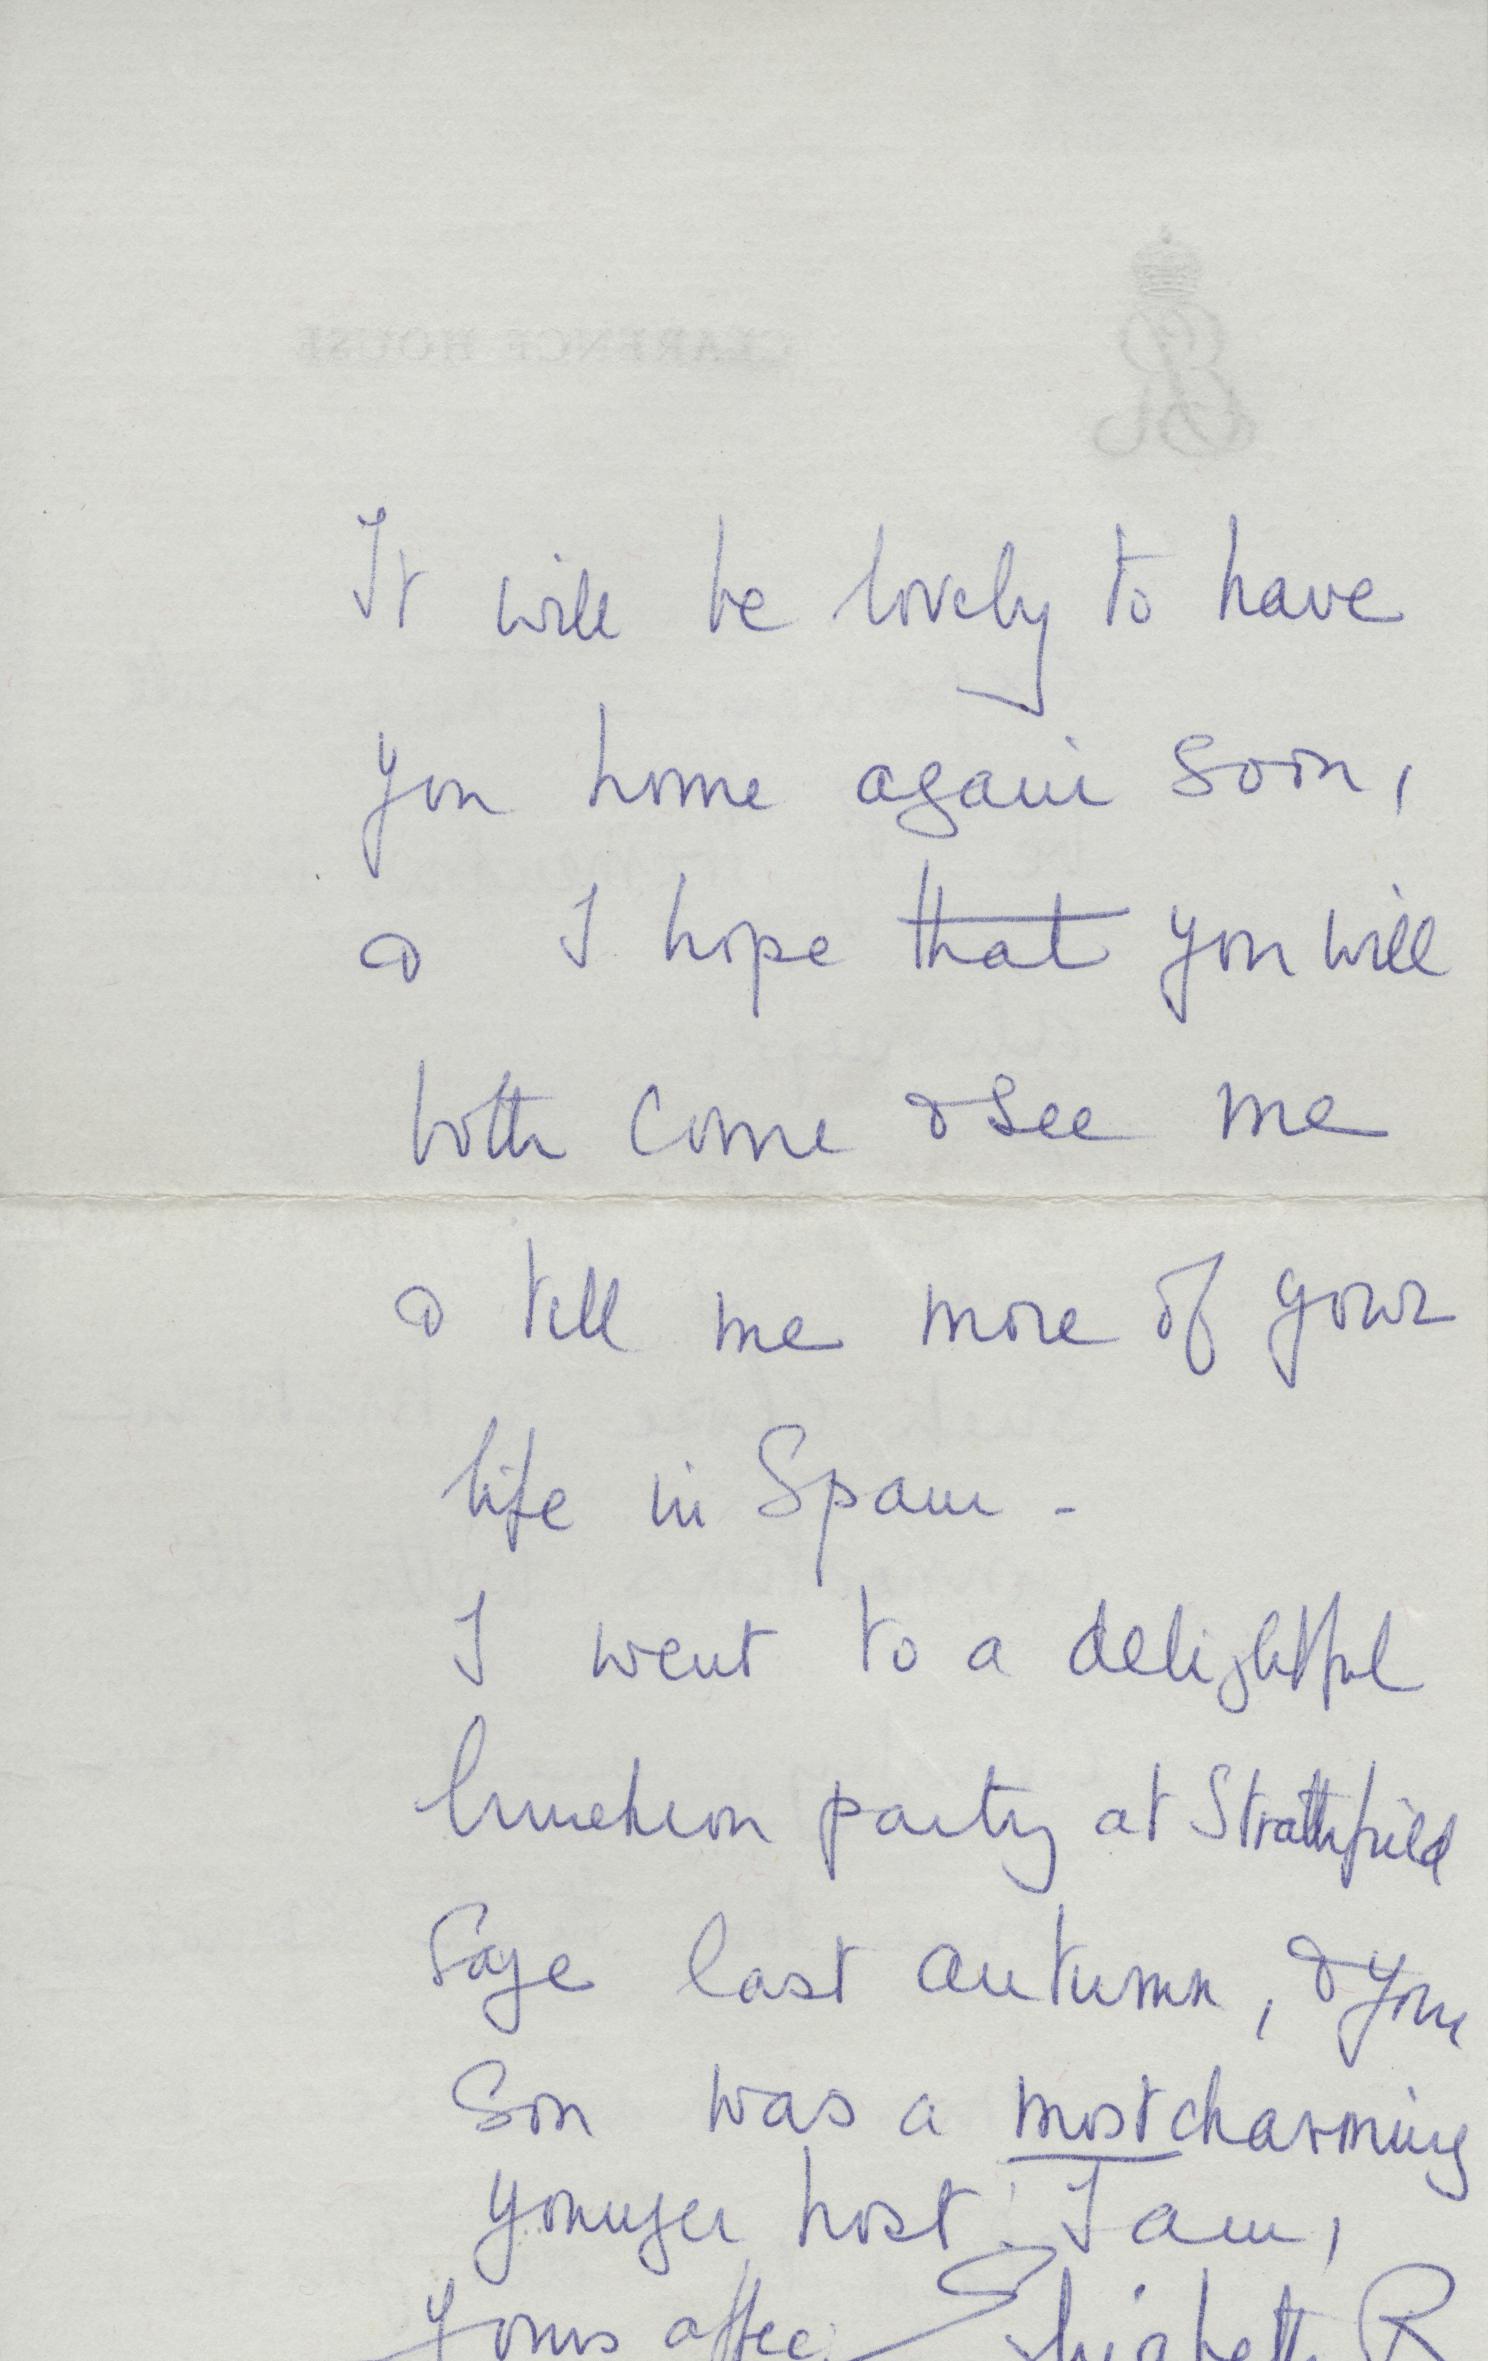 CLARENCE HOUSE
It will be lovely to have
you home again soon,
& I hope that you will
both come & see me
& tell me more of your
life in Spain -
I went to a delightful
luncheon party at Strathfield
Saye last autumn, & your
Son was a most charming
younger host! I am,
Yours affec: Elizabeth R